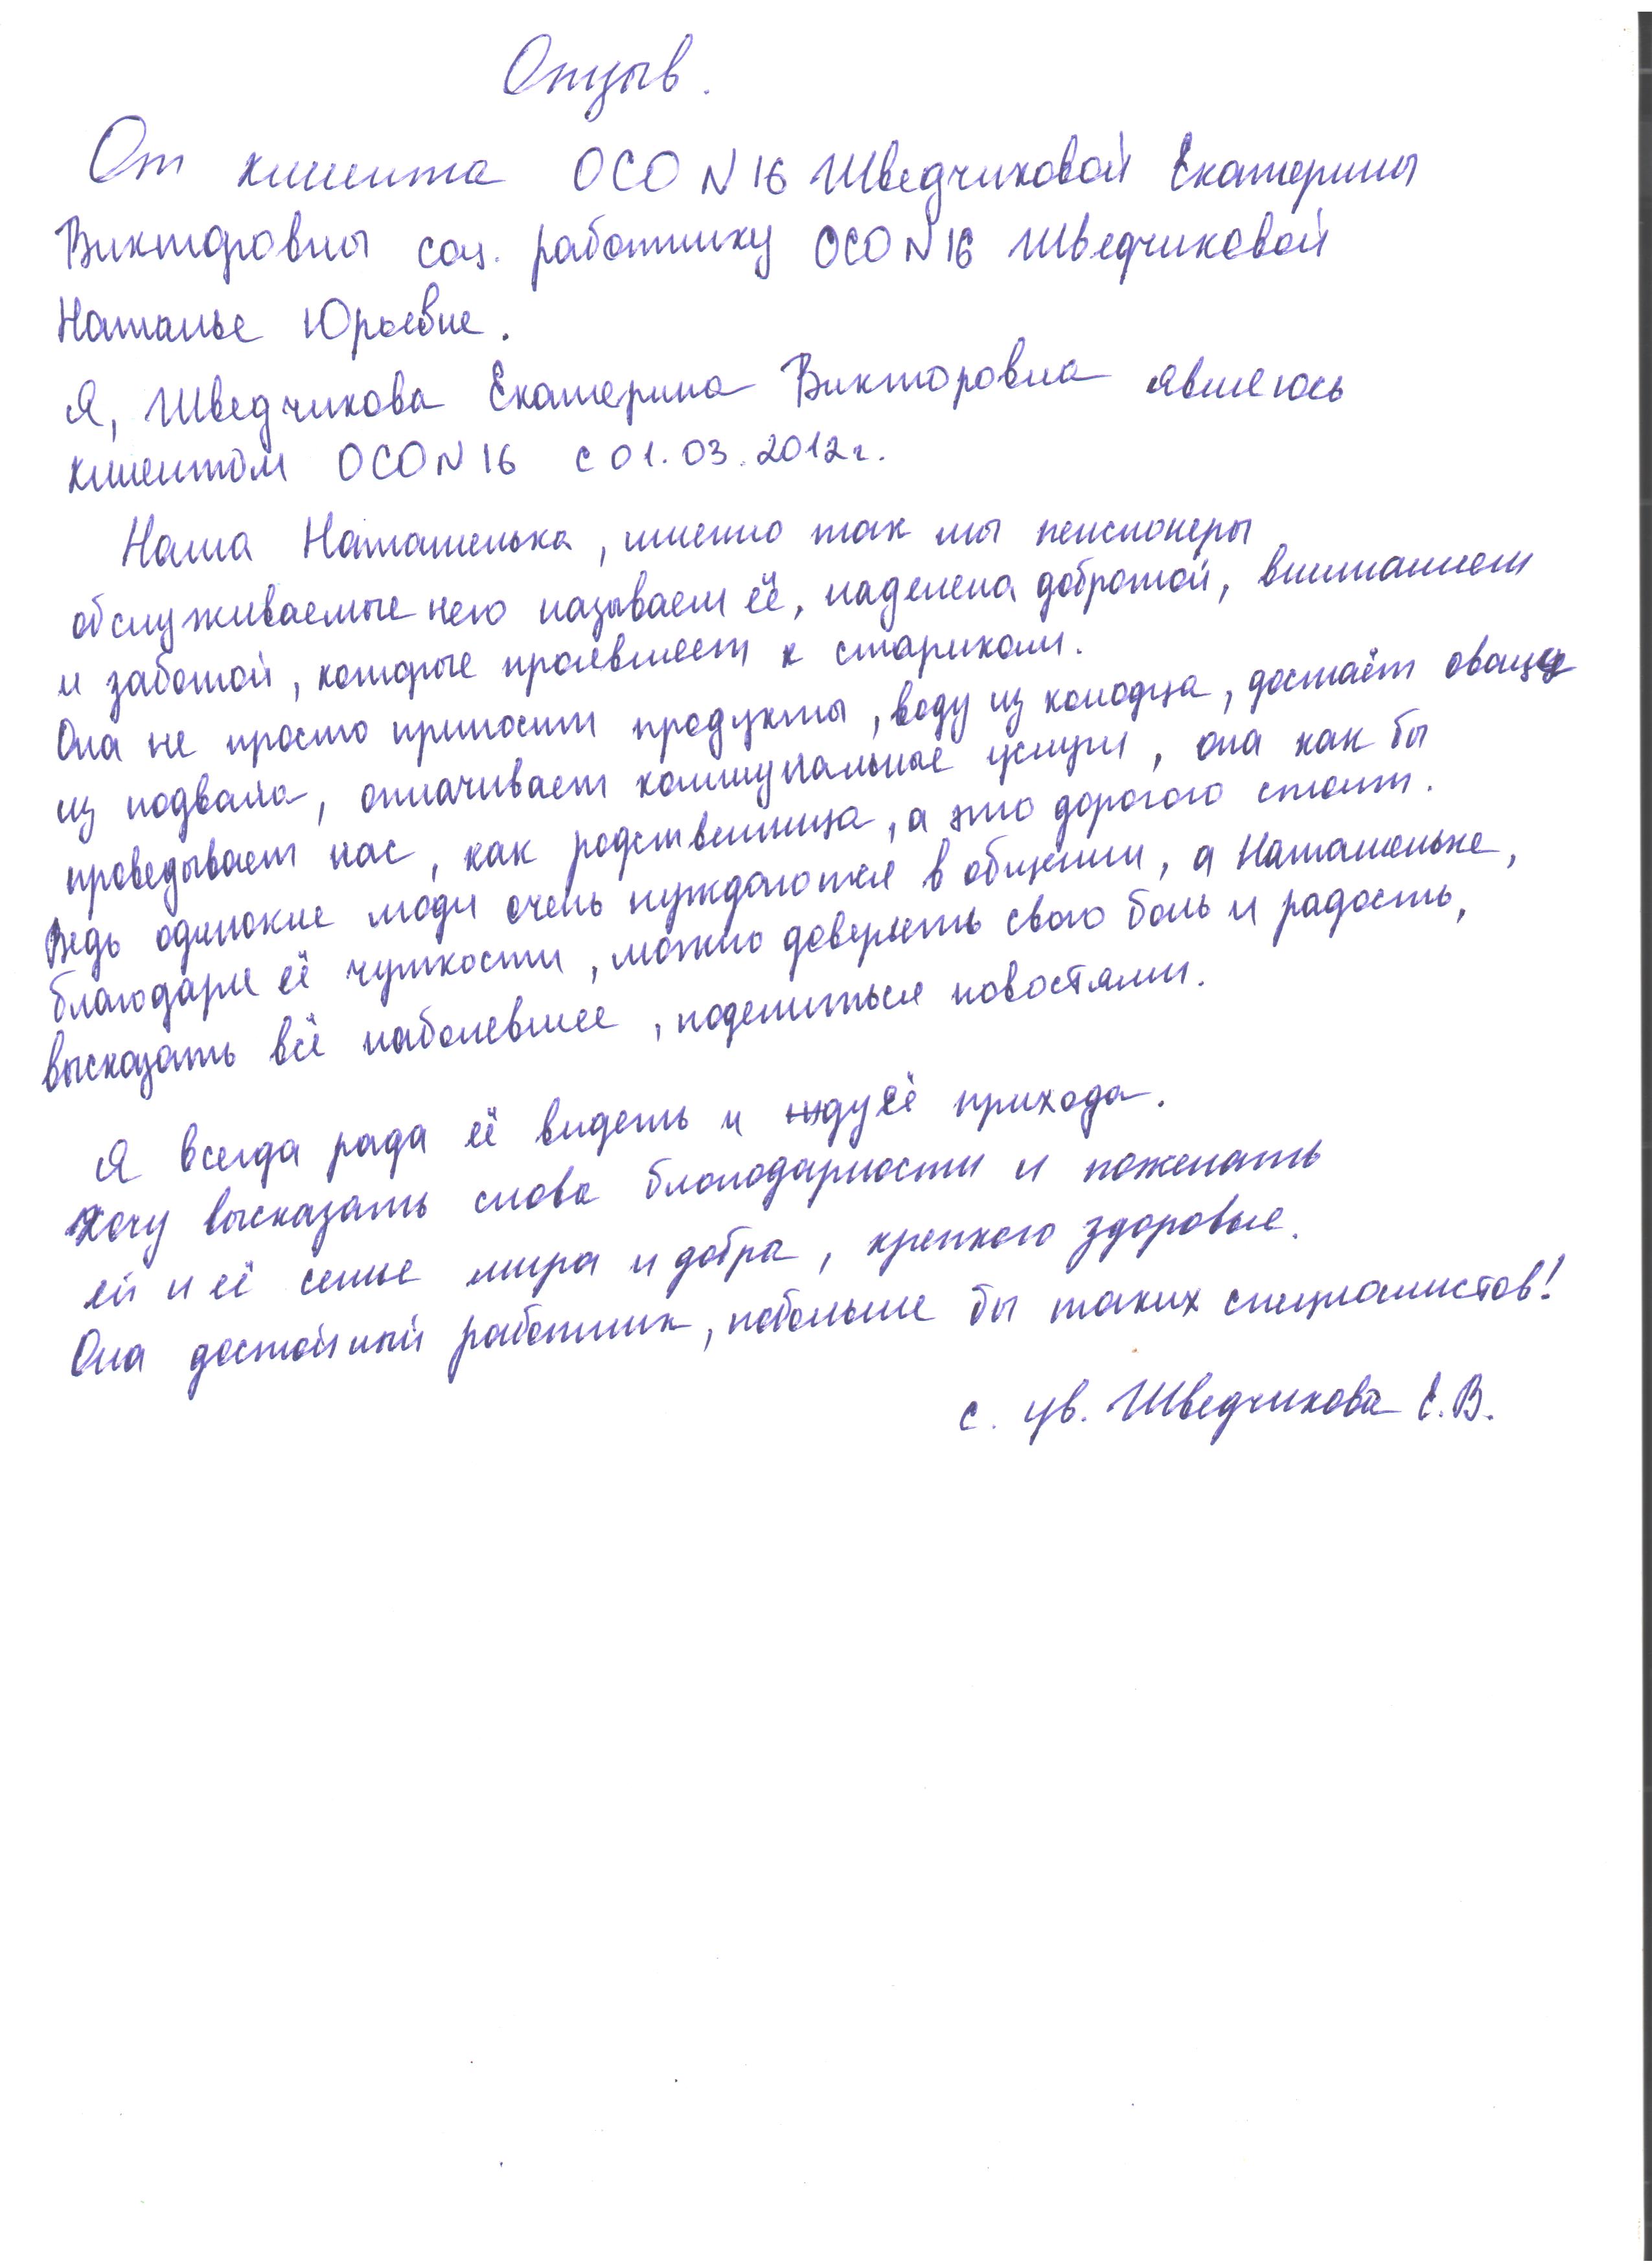 Отзыв.
От клиента ОСО N 16 Шведчиковой Екатерины
Викторовны соц. работнику ОСО N 16 Шведчиковой
Наталье Юрьевне.
Я, Шведчикова Екатерина Викторовна являюсь
клиентом ОСО N 16 с 01.03.2012г.
Наша Наташенька, именно так мы пенсионеры
обслуживаемые нею называем её, наделена добротой, вниманием
и заботой, которые проявляет к старикам.
Она не просто приносит продукты, воду из колодца, достаёт овощи
из подвала, оплачивает коммунальные услуги, она как бы
проведывает нас, как родственница, а это дорогого стоит.
Ведь одинокие люди очень нуждаются в общении, а Наташеньке,
благодаря её чуткости, можно доверять свою боль и радость,
высказать всё наболевшее, поделиться новостями.
Я всегда рада её видеть и жду её прихода.
Хочу высказать слова благодарности и пожелать
ей и её семье мира и добра, крепкого здоровья.
Она достойный работник, побольше бы таких специалистов!
с. ув. Шведчикова Е.В.